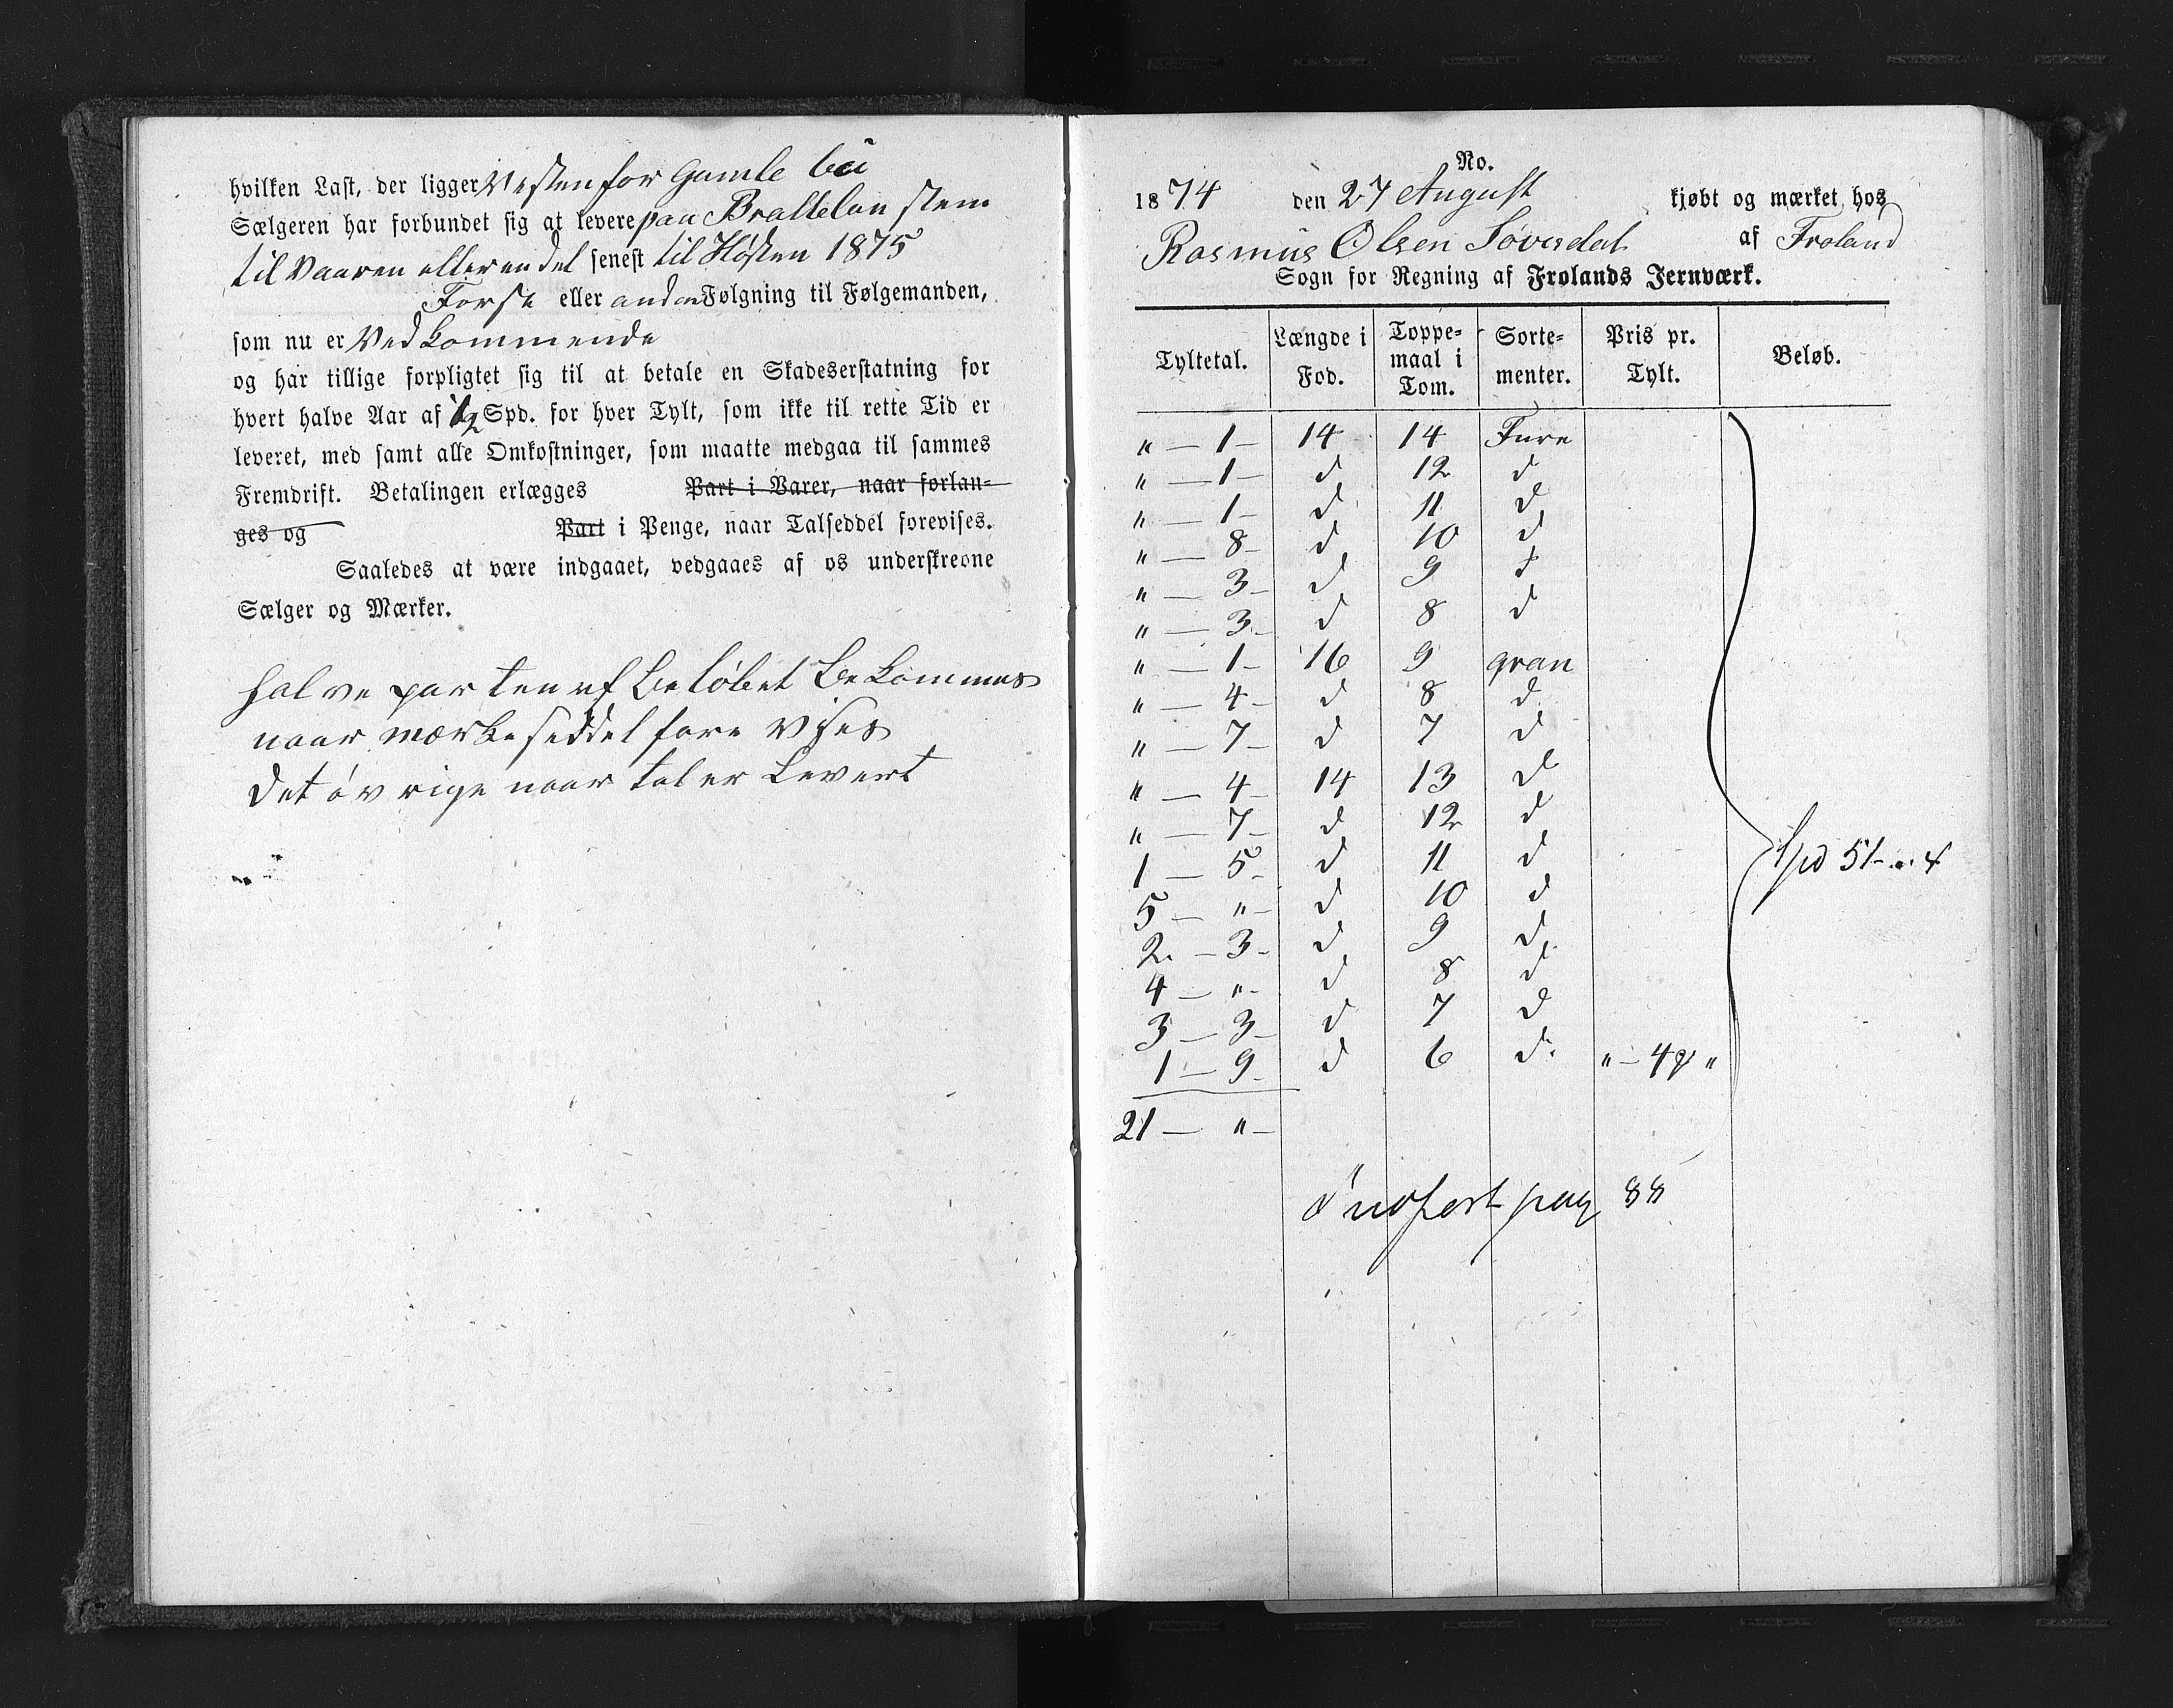 hvilken Last, der ligger Vestenfor Gamle bu
Sælgeren har forbundet sig at levere paa Brattelan stem
til Vaaren eller en del senest til Høsten 1875
Første eller anden Følgning til Følgemanden,
som nu er Vedkommende
og har tillige forpligtet sig til at betale en Skadeserstatning for
hvert halve Aar af 1/2 Spd. for hver Tylt, som ikke til rette Tid er
leveret, med samt alle Omkostninger, som maatte medgaa til sammes
Fremdrift. Betalingen erlægges Part i Varer, naar forlan-
ges og Part i Penge, naar Talseddel forevises.
Saaledes at være indgaaet, vedgaaes af os underskrevne
Sælger og Mærker.
halve parten af Beløbet Bekommes
naar mærkeseddel fore vises
det øvrige naar tal er Levert
No.
1874 den 27 August kjøbt og mærket hos
Rasmus Olsen Løvesdal af Froland
Sogn for Regning af Frolands Jernværk.
Tyltetal. Længde i Fod. Toppe-maal i Tom. Sorte-menter. Pris pr. Tylt. Beløb.
" — 1 — 14 14 Fure
" — 1 — d 12 d
" — 1 — d 11 d
" — 8 — d 10 d
" — 3 — d 9 d
" — 3 — d 8 d
" — 1 — 16 9 gran
" — 4 — d 8 d
" — 7 — d 7 d
" — 4 — 14 13 d
" — 7 — d 12 d
1 — 5 — d 11 d
Spd 51
5 — " — d 10 d
2 — 3 — d 9 d
4 — " — d 8 d
3 — 3 — d 7 d
1 — 9 — d 6 d. " — 4 "
21 — " —
Indført pag 88